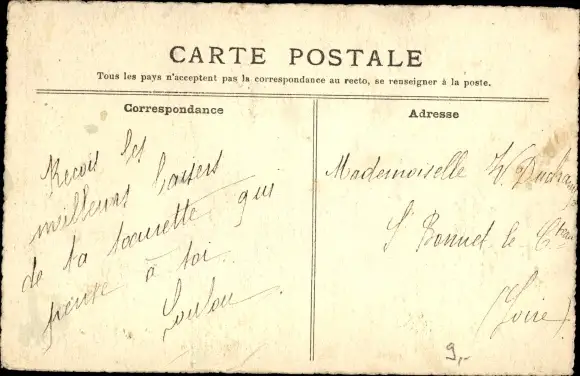 CARTE POSTALE
Tous les pays n'acceptent pas la correspondance au recto, se renseigner à la poste.
Correspondance
Reçois les
meilleurs baisers
de ta soeurette qui
pense à toi.
Loulou.
Adresse
Mademoiselle
St Bonnet le Cteau
(Loire)
9,-